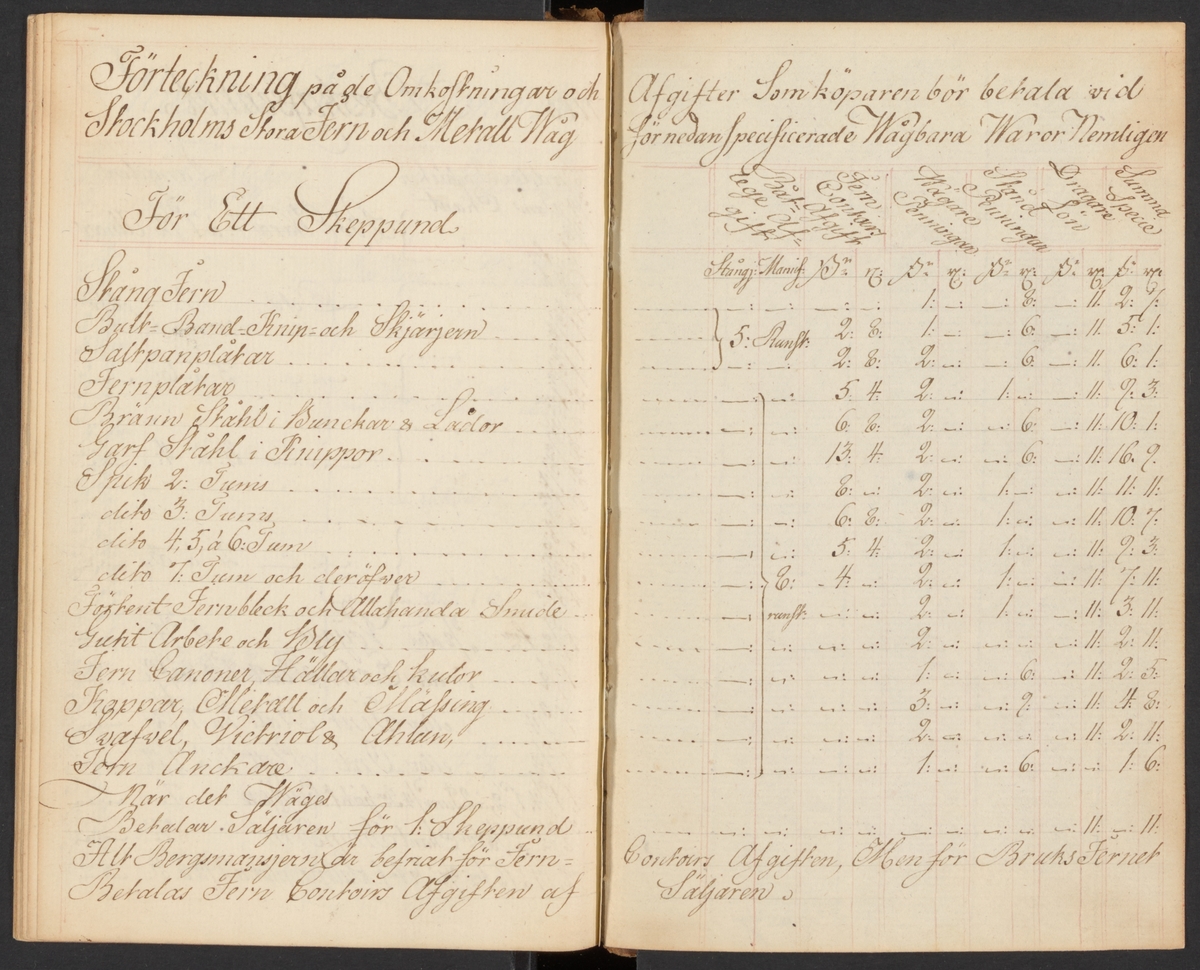 Förteckning på de Omkostningar och Afgifter Som köparen bör betala vid
Stockholms Stora Jern och Metall Wåg för nedan specificerade Wågbara Waror Nemligen
För Ett Skeppund
Båt- Afgift
Jern Contoirs Afgift
Wågare Penningar
Stånd Penningar
Dragare Lön
Summa Specie
Stångj: Manuf:
Stång Jern — 1: — 8: — 11. 2: 7:
Bult- Band- Knip- och Skjärjern 5: Runst: 2: 8: 1: — 6: — 11. 5: 1:
Saltpanplåtar 2: 8: 2: — 6: — 11. 6: 1:
Jernplåtar 5: 4: 2: 1: — 11: 9: 3:
Bränn Ståhl i Bunckar & Lådor 6: 8: 2: — 6: — 11: 10: 1:
Garf Ståhl i Knippor 13: 4: 2: — 6: — 11: 16: 9:
Spik 2: Tums 8: — 2: 1: — 11: 11: 11:
dito 3: Tums 6: 8: 2: 1: — 11: 10: 7:
dito 4, 5, à 6: Tum 5: 4: 2: 1: — 11: 9: 3:
dito 7: Tum och deröfver 8: 4: — 2: 1: — 11: 7: 11:
Förtent Jernbleck och Allahanda Smide runst: 2: 1: — 11: 3: 11:
Gutit Arbete och Bly 2: — 11: 2: 11:
Jern Canoner, Hällar och kulor 1: — 6: — 11: 2: 5:
Koppar, Metall och Mässing 3: — 9: — 11: 4: 8:
Svafvel, Victriol & Ahlun, 2: — 11: 2: 11:
Jern Anckare 1: — 6: — 1: 6:
När det Wäges
Betalar Säljaren för 1: Skeppund — 11: — 11:
Alt Bergsmansjern är befriat för Jern- Contoirs Afgiften, Men för Bruks Jernet
Betalas Jern Contoirs Afgiften af Säljaren.